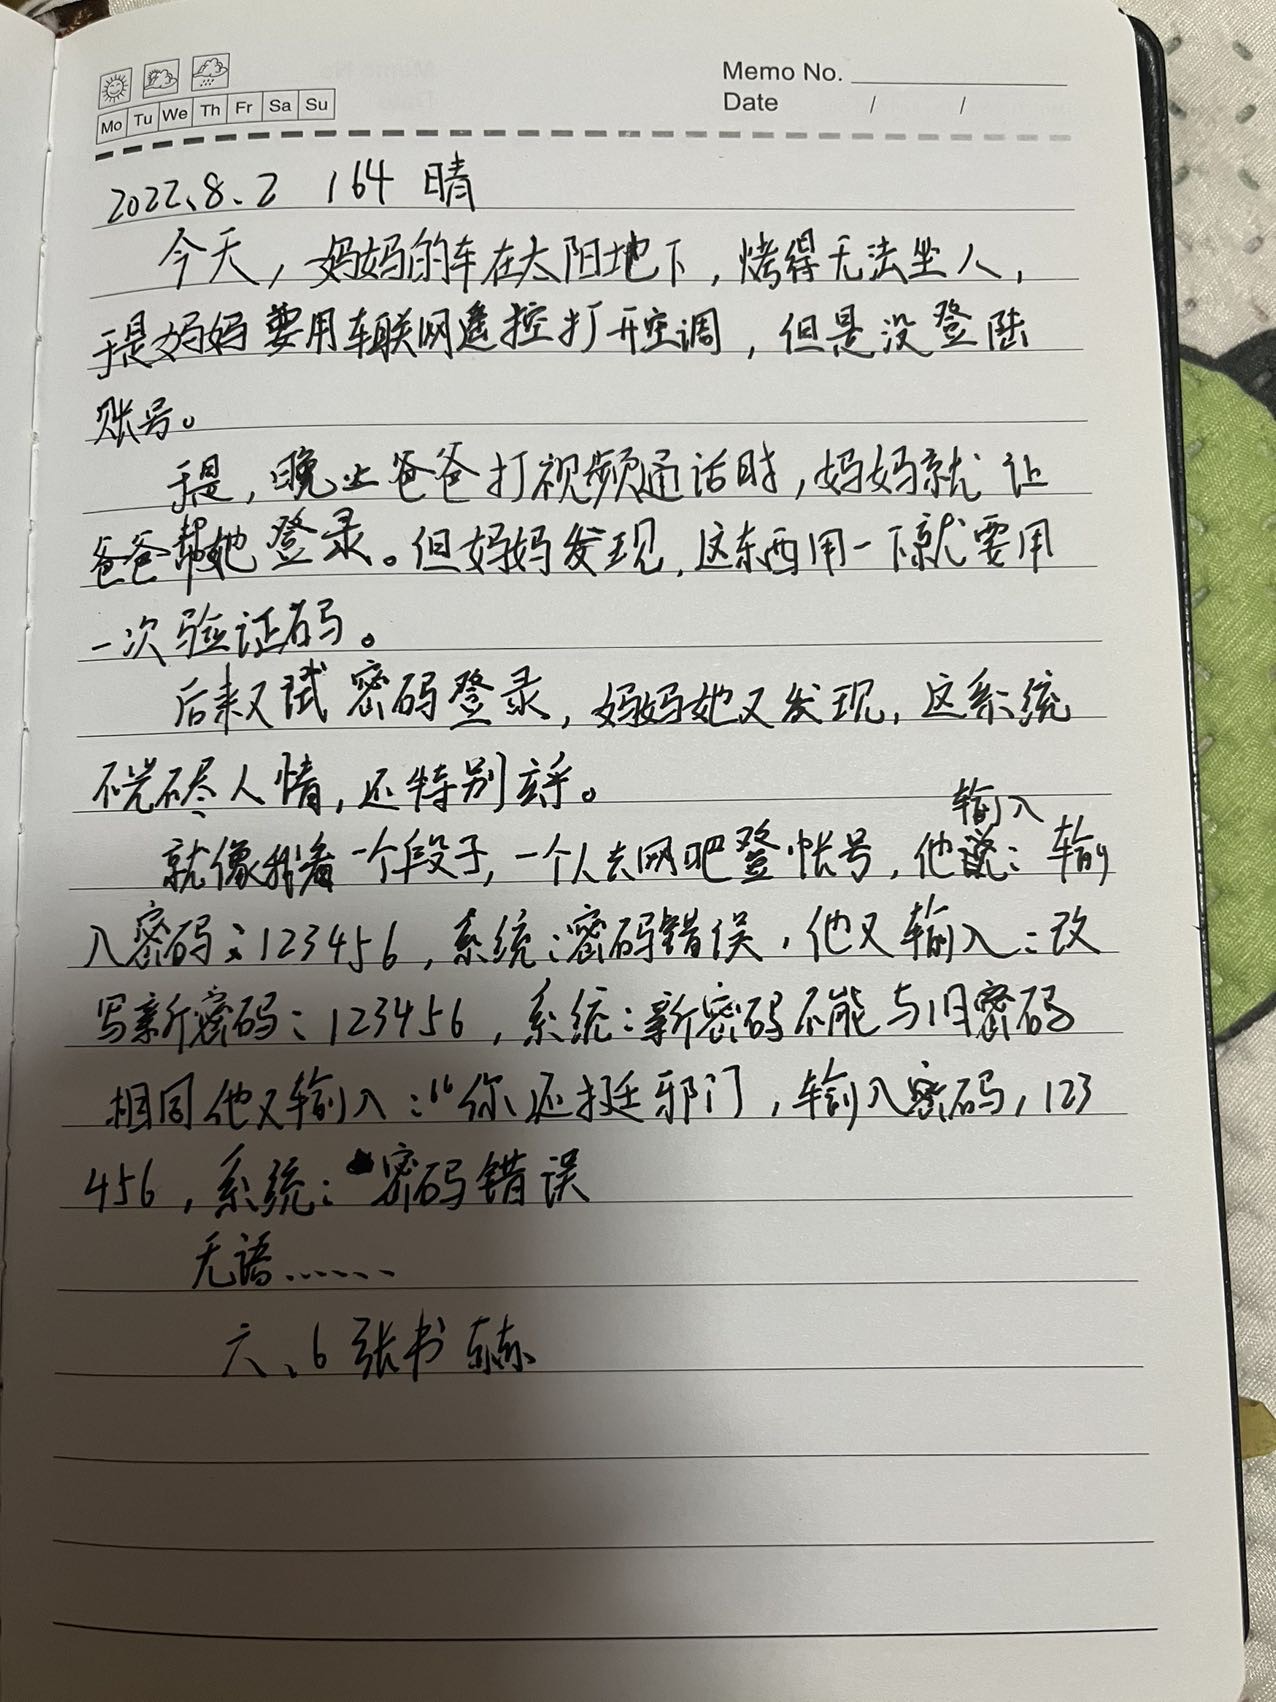 Memo No.
Mo Tu We Th Fr Sa Su
Date / /
2022、8、2 164 晴
今天，妈妈的车在太阳地下，烤得无法坐人，
于是妈妈要用车联网遥控打开空调，但是没登陆
账号。
于是，晚上爸爸打视频通话时，妈妈就让
爸爸帮她登录。但妈妈发现，这东西用一下就要用
一次验证码。
后来又试密码登录，妈妈她又发现，这系统
不光不尽人情，还特别
输入
就像我看一个段子，一个人去网吧登帐号，他说：输
入密码：123456，系统：密码错误，他又输入：改
写新密码：123456，系统：新密码不能与旧密码
相同他又输入：“你还挺邪门，输入密码，123
456，系统：密码错误
无语……
六、6张书